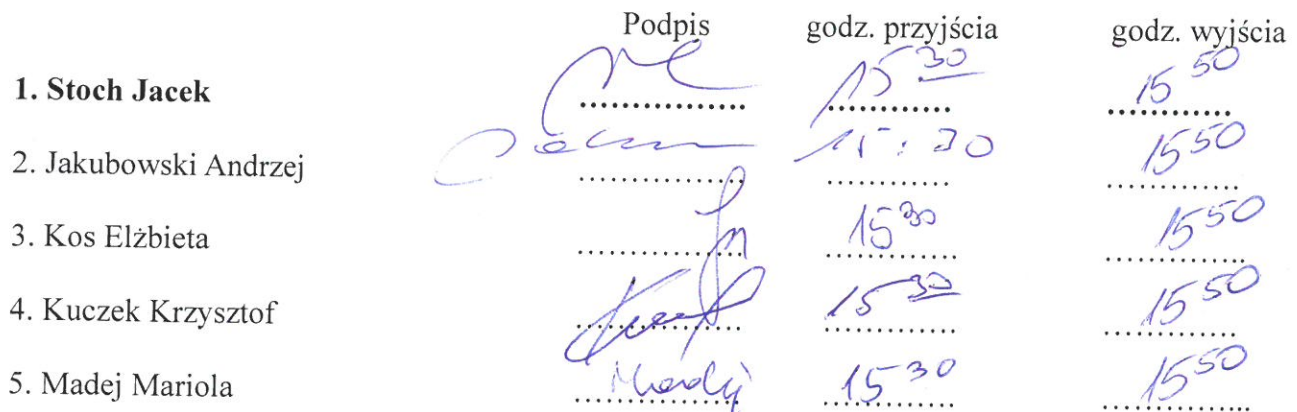 Podpis godz. przyjścia godz. wyjścia
1. Stoch Jacek 15 30 15 50
2. Jakubowski Andrzej 15:30 15 50
3. Kos Elżbieta 15 30 15 50
4. Kuczek Krzysztof 15 30 15 50
5. Madej Mariola Madej 15 30 15 50